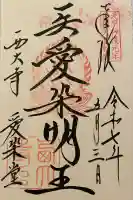 奉拝
令和七年
五月三日
愛染明王
西大寺
愛染堂